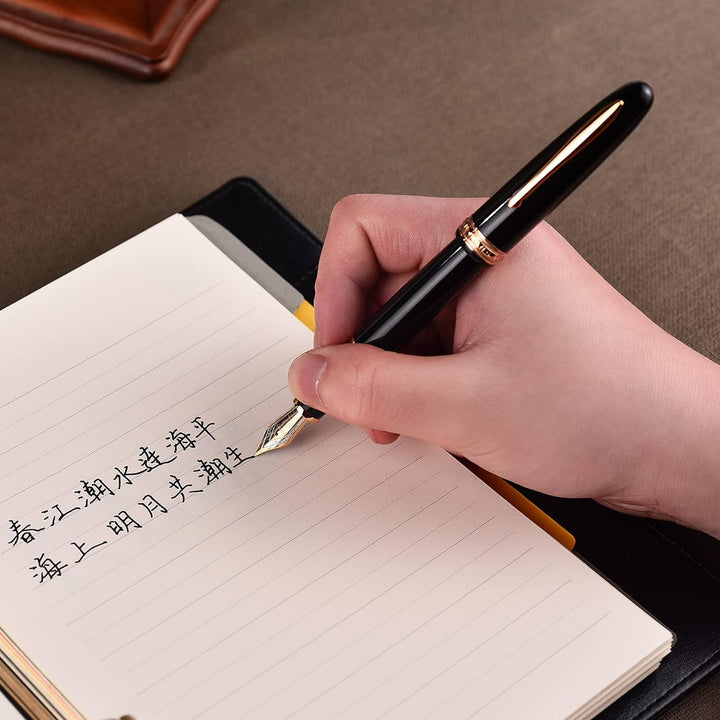 春江潮水连海平
海上明月共潮生